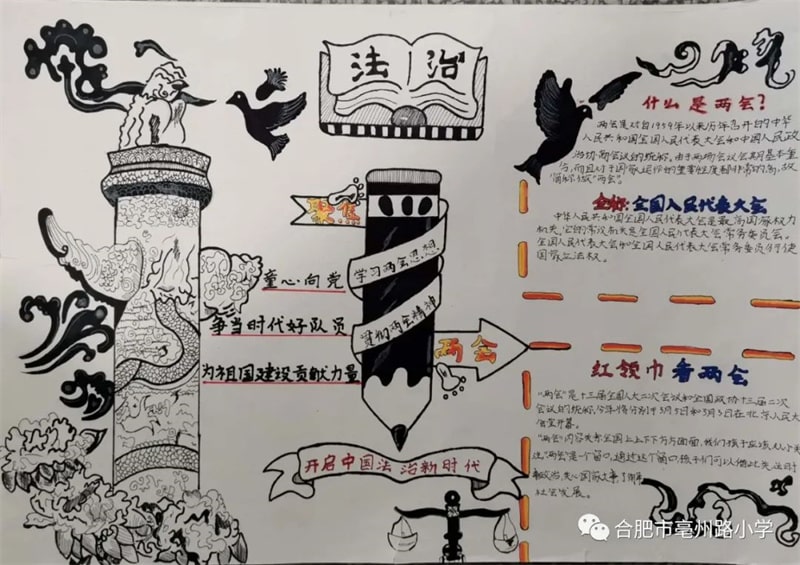 法治
什么是两会?
两会是对自1959年以来历年召开的中华
人民共和国全国人民代表大会和中国人民政
治协商会议的统称。由于两场会议会期基本重
合,而且对于国家运作的重要程度都非常的高,故
简称做"两会"。
聚焦
学习两会思想
贯彻两会精神
两会
童心向党
争当时代好队员
为祖国建设贡献力量
全称:全国人民代表大会
中华人民共和国全国人民代表大会是最高国家权力
机关,它的常设机关是全国人民代表大会常务委员会。
全国人民代表大会和全国人民代表大会常务委员会行使
国家立法权。
红领巾看两会
"两会"是十三届全国人大二次会议和全国政协十三届二次
会议的统称,今年将分别于3月5日和3月3日在北京人民大
会堂开幕。
"两会"内容关系全国上上下下方方面面,我们孩子应该从小关
注。"两会"是一个窗口,通过这个窗口,孩子们可以借此关注时
事政治,关心国家大事了解
社会发展。
开启中国法治新时代
合肥市亳州路小学